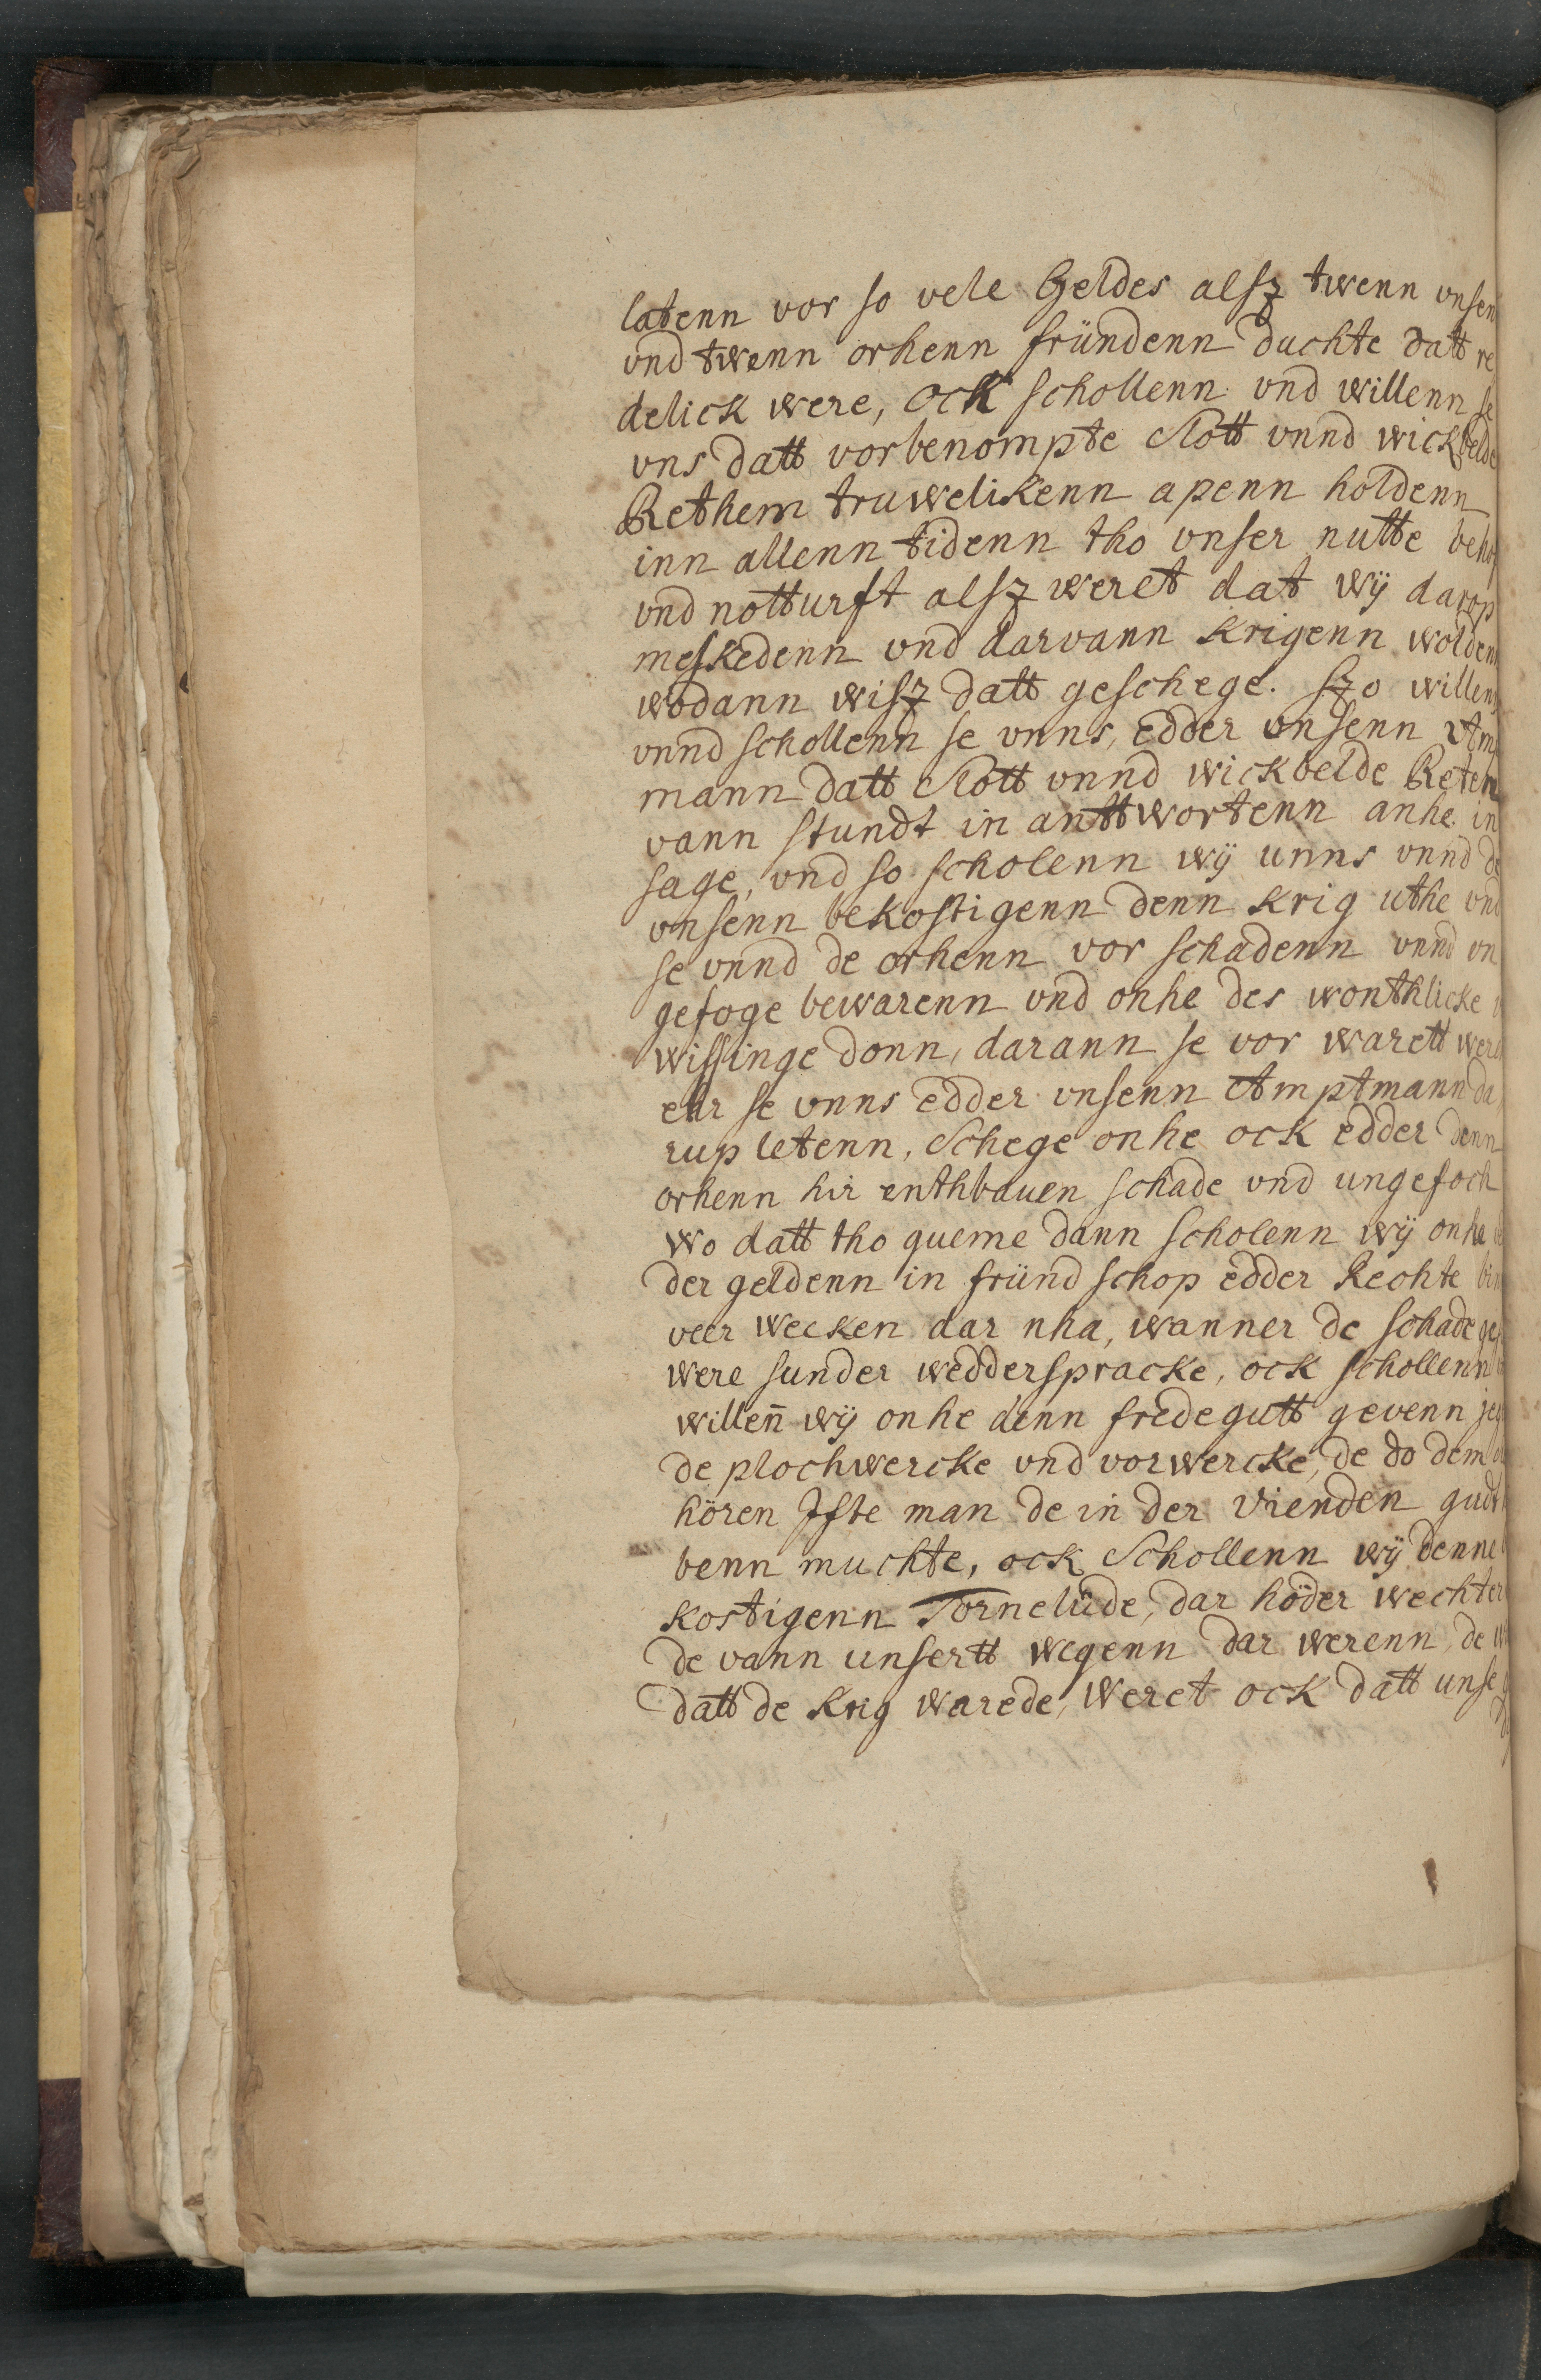 latenn vor so vele Geldes alsz twenn vnsen
vnd twenn orhenn fründenn duchte datt re
delick were, ock schollenn vnd willenn se
vns datt vorbenompte Slott vnnd wickbelde
Rethem truwelikenn apenn holdenn
inn allenn tidenn tho vnser nutte beho
vnd notturft alsz weret dat wÿ darop
meskedenn vnd darvann krigenn wolden
wodann wisz datt geschege. Szo willenn
vnnd schollenn se vnns, edder vnsenn Am
mann datt Slott vnnd wickbelde Retem
vann stundt in anttwortenn anhe in
sage, vnd so scholenn wÿ unns vnnd de
vnsenn bekostigenn denn krig uthe vnd
se vnnd de orhenn vor schadenn vnnd vn
gefoge bewarenn vnd onhe des wonthlicke
wissinge donn, darann se vor warett were
ehr se vnns edder vnsenn Amptmann da
rup letenn, Schege onhe ock edder denn
orhenn hir enthbauen schade vnd ungefoch
wo datt tho queme dann scholenn wÿ onhe
der geldenn in fründ schop edder Rechte bin
veer wecken dar nha, wanner de schade ges
were sunder wedderspracke, ock schollenn
willen̄ wÿ onhe denn fredegutt gevenn jeg
de plochwercke vnd vorwercke, de do dem
hören Jfte man de in der vienden gud
benn muchte, ock Schollenn wÿ denne
kostigenn Tornelüde, dar höder wechter
de vann unsertt wegenn dar werenn, de
datt de krig warede, weret ock datt unse